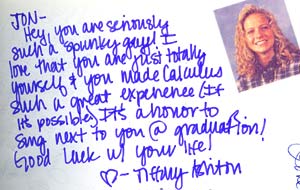 JON-
Hey! you are seriously
such a spunky guy! I
love that you are just totally
yourself & you made Calculus
such a great experience (If
it's possible) It's a honor to
sing next to you @ graduation!
Good Luck w/ your life!
♡- Tiffany